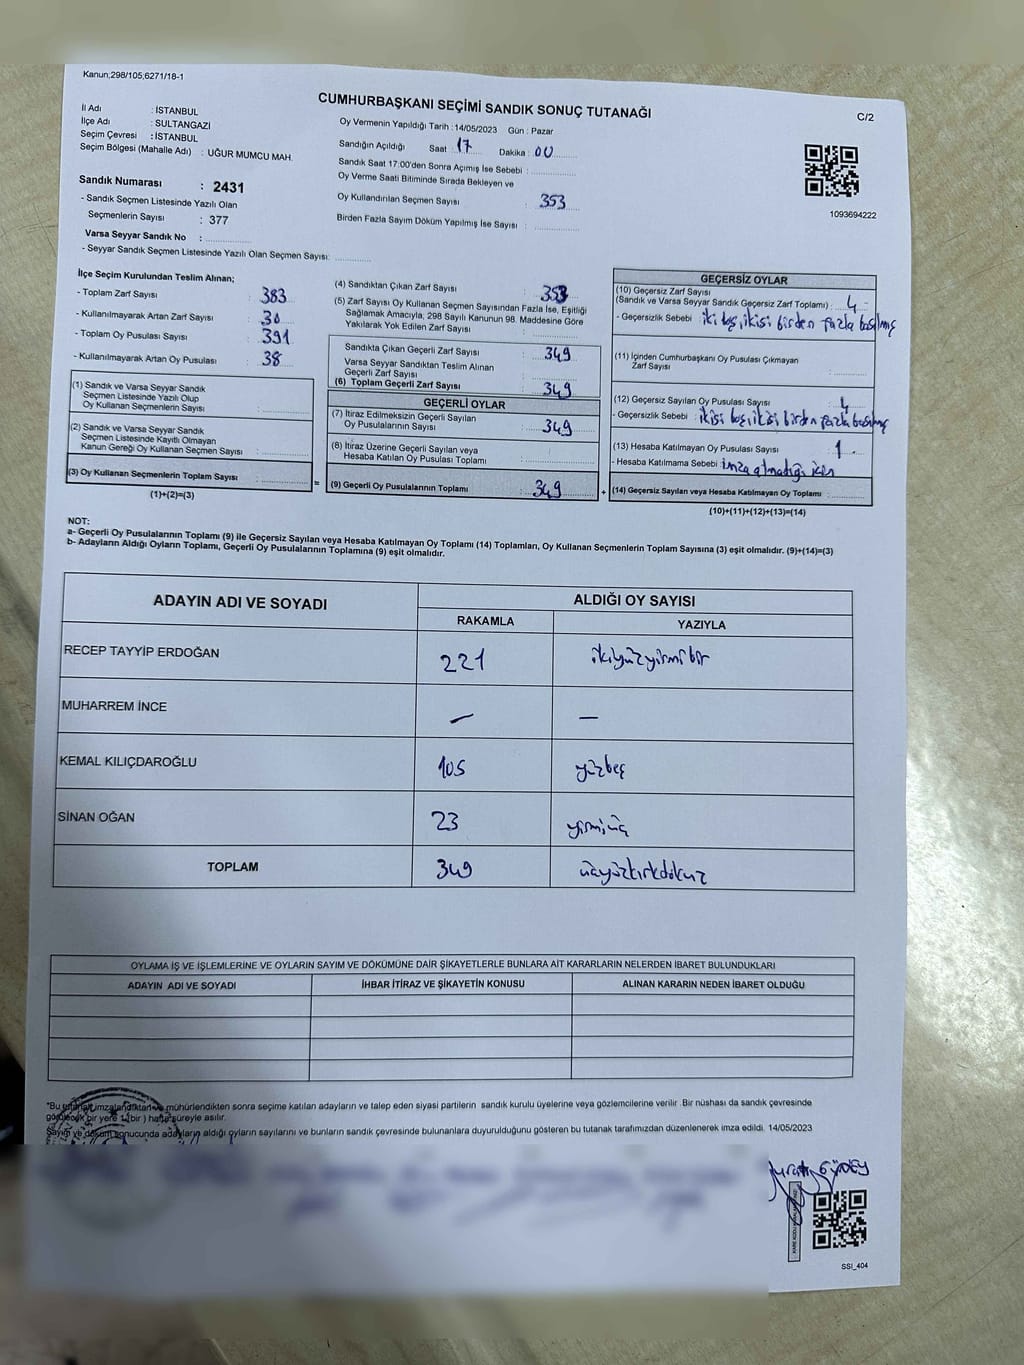 Kanun;298/105;6271/18-1
CUMHURBAŞKANI SEÇİMİ SANDIK SONUÇ TUTANAĞI
C/2
İl Adı : İSTANBUL
İlçe Adı : SULTANGAZİ
Seçim Çevresi : İSTANBUL
Seçim Bölgesi (Mahalle Adı) : UĞUR MUMCU MAH.
Sandık Numarası : 2431
- Sandık Seçmen Listesinde Yazılı Olan
Seçmenlerin Sayısı : 377
Varsa Seyyar Sandık No :
- Seyyar Sandık Seçmen Listesinde Yazılı Olan Seçmen Sayısı:
Oy Vermenin Yapıldığı Tarih : 14/05/2023 Gün : Pazar
Sandığın Açıldığı Saat : 17 Dakika : 00
Sandık Saat 17:00'den Sonra Açımış İse Sebebi :
Oy Verme Saati Bitiminde Sırada Bekleyen ve
Oy Kullandırılan Seçmen Sayısı : 353
Birden Fazla Sayım Döküm Yapılmış İse Sayısı :
1093694222
İlçe Seçim Kurulundan Teslim Alınan;
- Toplam Zarf Sayısı : 383
- Kullanılmayarak Artan Zarf Sayısı : 30
- Toplam Oy Pusulası Sayısı : 391
- Kullanılmayarak Artan Oy Pusulası : 38
(1) Sandık ve Varsa Seyyar Sandık
Seçmen Listesinde Yazılı Olup
Oy Kullanan Seçmenlerin Sayısı :
(2) Sandık ve Varsa Seyyar Sandık
Seçmen Listesinde Kayıtlı Olmayan
Kanun Gereği Oy Kullanan Seçmen Sayısı :
(3) Oy Kullanan Seçmenlerin Toplam Sayısı :
(1)+(2)=(3)
=
(4) Sandıktan Çıkan Zarf Sayısı : 353
(5) Zarf Sayısı Oy Kullanan Seçmen Sayısından Fazla İse, Eşitliği
Sağlamak Amacıyla, 298 Sayılı Kanunun 98. Maddesine Göre
Yakılarak Yok Edilen Zarf Sayısı :
Sandıkta Çıkan Geçerli Zarf Sayısı : 349
Varsa Seyyar Sandıktan Teslim Alınan
Geçerli Zarf Sayısı :
(6) Toplam Geçerli Zarf Sayısı : 349
GEÇERLİ OYLAR
(7) İtiraz Edilmeksizin Geçerli Sayılan
Oy Pusulalarının Sayısı : 349
(8) İtiraz Üzerine Geçerli Sayılan veya
Hesaba Katılan Oy Pusulası Toplamı :
(9) Geçerli Oy Pusulalarının Toplamı : 349
+
GEÇERSİZ OYLAR
(10) Geçersiz Zarf Sayısı
(Sandık ve Varsa Seyyar Sandık Geçersiz Zarf Toplamı) : 4
- Geçersizlik Sebebi : iki boş, ikisi birden fazla basılmış
(11) İçinden Cumhurbaşkanı Oy Pusulası Çıkmayan
Zarf Sayısı :
(12) Geçersiz Sayılan Oy Pusulası Sayısı : 4
- Geçersizlik Sebebi : ikisi boş, ikisi birden fazla basılmış
(13) Hesaba Katılmayan Oy Pusulası Sayısı : 1
- Hesaba Katılmama Sebebi : imza atmadığı için
(14) Geçersiz Sayılan veya Hesaba Katılmayan Oy Toplamı :
(10)+(11)+(12)+(13)=(14)
NOT:
a- Geçerli Oy Pusulalarının Toplamı (9) ile Geçersiz Sayılan veya Hesaba Katılmayan Oy Toplamı (14) Toplamları, Oy Kullanan Seçmenlerin Toplam Sayısına (3) eşit olmalıdır. (9)+(14)=(3)
b- Adayların Aldığı Oyların Toplamı, Geçerli Oy Pusulalarının Toplamına (9) eşit olmalıdır.
ADAYIN ADI VE SOYADI ALDIĞI OY SAYISI
RAKAMLA YAZIYLA
RECEP TAYYİP ERDOĞAN 221 ikiyüzyirmibir
MUHARREM İNCE — —
KEMAL KILIÇDAROĞLU 105 yüzbeş
SİNAN OĞAN 23 yirmiüç
TOPLAM 349 üçyüzkırkdokuz
OYLAMA İŞ VE İŞLEMLERİNE VE OYLARIN SAYIM VE DÖKÜMÜNE DAİR ŞİKAYETLERLE BUNLARA AİT KARARLARIN NELERDEN İBARET BULUNDUKLARI
ADAYIN ADI VE SOYADI İHBAR İTİRAZ VE ŞİKAYETİN KONUSU ALINAN KARARIN NEDEN İBARET OLDUĞU
"Bu tutanak imzalandıktan ve mühürlendikten sonra seçime katılan adayların ve talep eden siyasi partilerin sandık kurulu üyelerine veya gözlemcilerine verilir .Bir nüshası da sandık çevresinde
görülecek bir yere 1 (bir ) hafta süreyle asılır.
Sayım ve döküm sonucunda adayların aldığı oyların sayılarını ve bunların sandık çevresinde bulunanlara duyurulduğunu gösteren bu tutanak tarafımızdan düzenlenerek imza edildi. 14/05/2023
SSİ_404